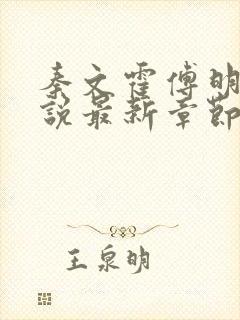 秦文霍傅明
說最新章節
王泉明